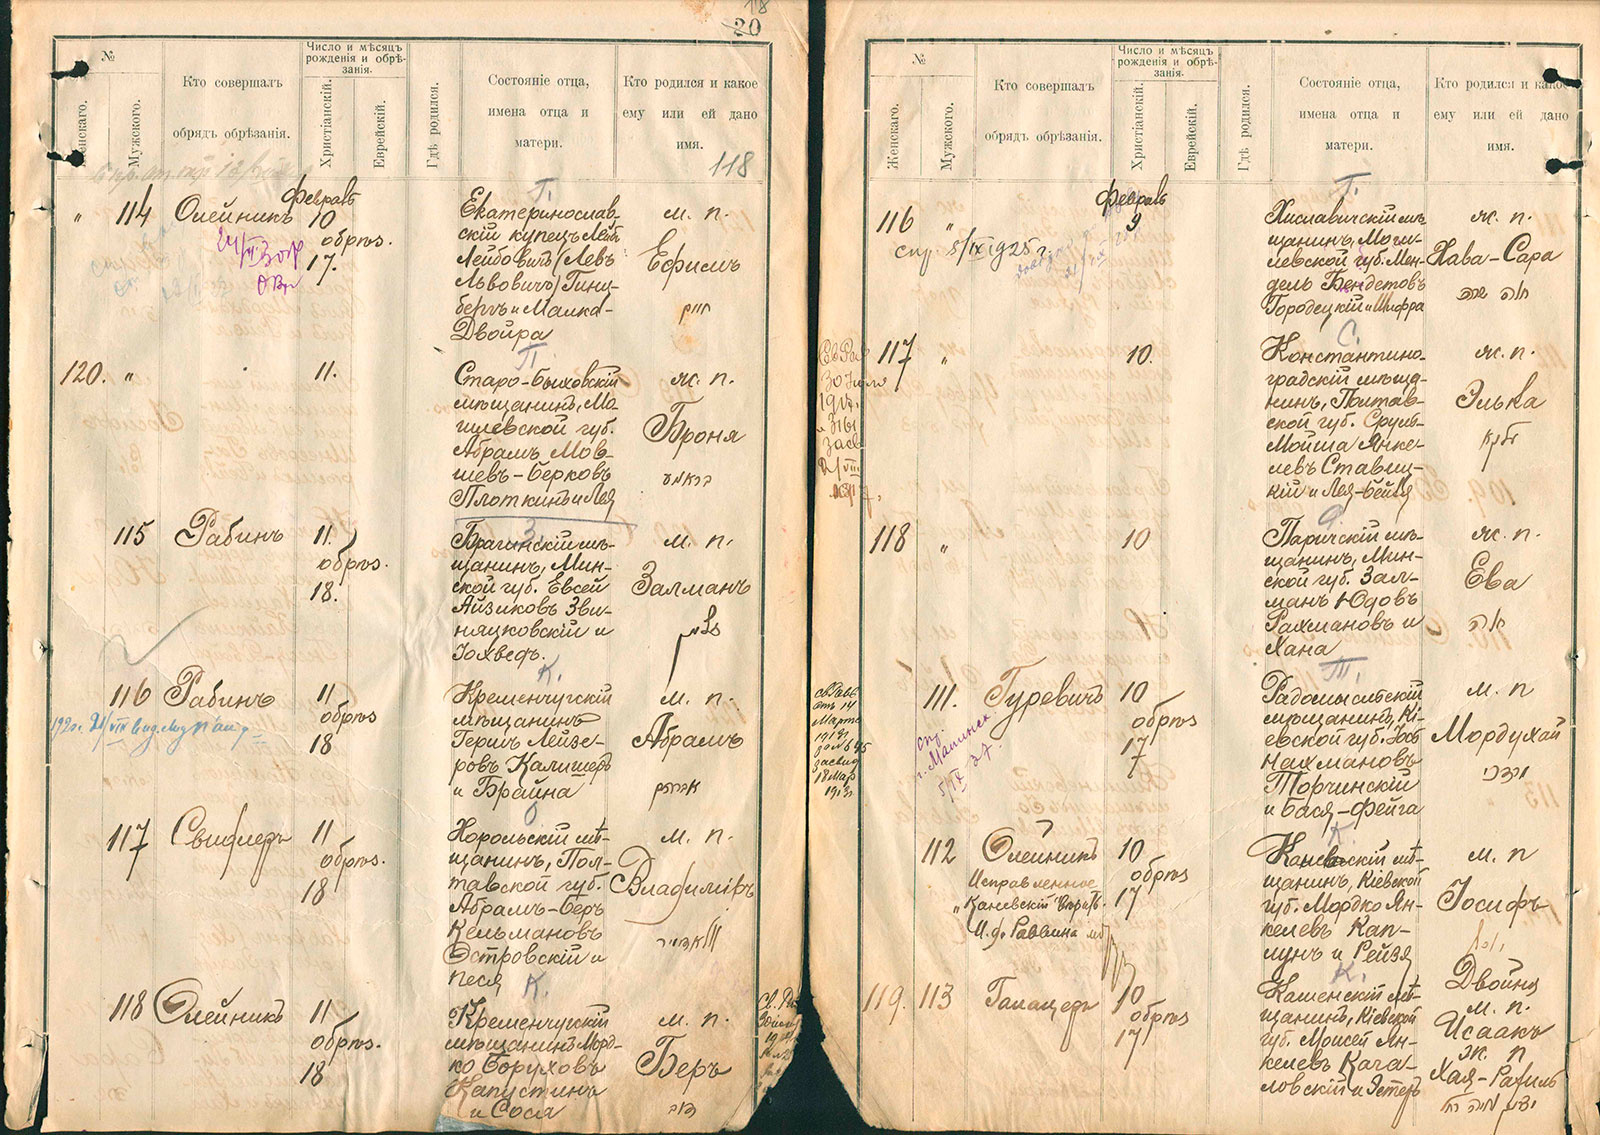 118
20
№
Женскаго.
Мужского.
Кто совершалъ
обрядъ обрѣзанія.
Число и мѣсяцъ
рожденія и обрѣ-
занія.
Христіанскій.
Еврейскій.
Гдѣ родился.
Состояніе отца,
имена отца и
матери.
Кто родился и какое
ему или ей дано
имя.
118
Февраль
П.
" 114 Олейникъ 10
обрѣз.
17.
Екатеринослав-
скій купецъ Лейб
Лейбовичъ (Левъ
Львовичъ) Гинц-
бергъ и Малка-
Двойра
м. п.
Ефимъ
חיים
П.
120. " 11.
Старо-Быховскій
мѣщанинъ, Мо-
гилевской губ.
Абрамъ Мов-
шевъ-Берковъ
Плоткинъ и Лея
ж. п.
Броня
З.
115 Рабинъ 11.
обрѣз.
18.
Брагинскій мѣ-
щанинъ, Мин-
ской губ. Евсей
Айзиковъ Зви-
няцковскій и
Іохведъ.
м. п.
Залманъ
זלמן
К.
116 Рабинъ 11
обрѣз
18
Кременчугскій
мѣщанинъ
Гершъ Лейзе-
ровъ Калишеръ
и Брайна
м. п.
Абрамъ
אברהם
О
117 Свифлеръ 11
обрѣз.
18
Хорольскій мѣ-
щанинъ, Пол-
тавской губ.
Абрамъ-Беръ
Кельмановъ
Островскій и
Песя
м. п.
Владиміръ
К.
118 Олейникъ 11
обрѣз.
18
Кременчугскій
мѣщанинъ Морд-
ко Боруховъ
Капустинъ
и Сося
м. п.
Беръ
№
Женскаго.
Мужского.
Кто совершалъ
обрядъ обрѣзанія.
Число и мѣсяцъ
рожденія и обрѣ-
занія.
Христіанскій.
Еврейскій.
Гдѣ родился.
Состояніе отца,
имена отца и
матери.
Кто родился и какое
ему или ей дано
имя.
Февраль
Г.
116 " 9
5/IX 1925 г.
Хиславичскій мѣ-
щанинъ, Моги-
левской губ. Мен-
дель Бендетовъ
Городецкій и Шифра
ж. п.
Хава-Сара
חוה שרה
С.
117 " 10.
Константино-
градскій мѣща-
нинъ, Полтав-
ской губ. Сруль-
Мойша Янке-
левъ Ставиц-
кій и Лея-Бейля
ж. п.
Элька
עלקא
118 " 10
Паричскій мѣ-
щанинъ, Мин-
ской губ. Зал-
манъ Юдовъ
Рахмановъ и
Хана
ж. п.
Ева
חוה
Т.
111. Гуревичъ 10
обрѣз
17
17
Радомысльскій
мѣщанинъ, Кі-
евской губ.
Нахмановъ
Торчинскій
и Бася-Фейга
м. п
Мордухай
מרדכי
К.
112 Олейникъ 10
обрѣз
17
Исправленное
"Каневскій" вѣрить.
И. д. Раввина
Каневскій мѣ-
щанинъ, Кіевской
губ. Мордко Ян-
келевъ Кап-
лунъ и Рейзя
м. п
Іосифъ
יוסף
К.
119. 113 Галацеръ 10
обрѣз
17
щанинъ, Кіевской
губ. Мошей Ян-
келевъ Кача-
ловскій и Эстеръ
Двойня
м. п.
Исаакъ
ж. п
Хая-Рахиль